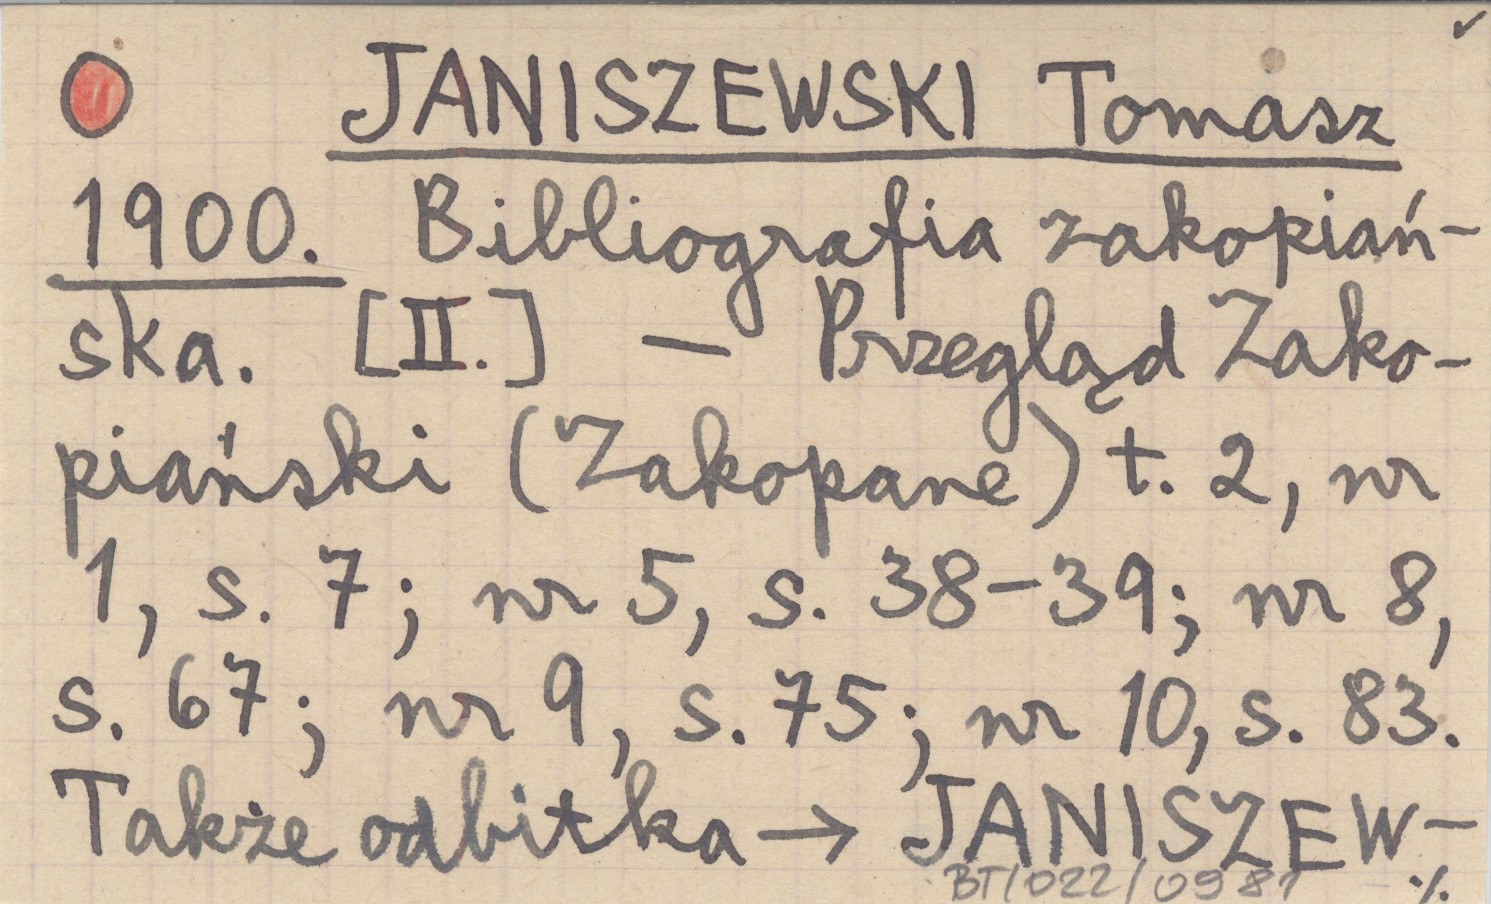 JANISZEWSKI Tomasz
1900. Bibliografia zakopiań-
ska. [II.] – Przegląd Zako-
piański (Zakopane) t. 2, nr
1, s. 7; nr 5, s. 38–39; nr 8,
s. 67; nr 9, s. 75; nr 10, s. 83.
Także odbitka → JANISZEW-
BT/022/0981 ·/.